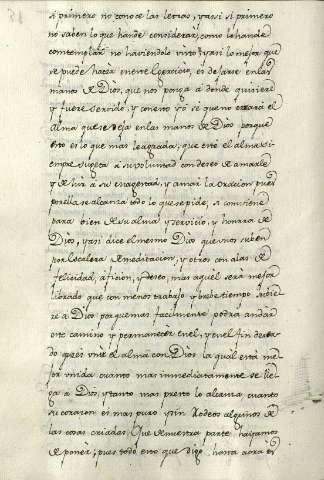 si primero no conoce las letras, y assi si primero
no saben lo que han de considerar, como lo han de
contemplar no haviendolo visto; y assi lo mejor que
se puede hacer en este Exercicio, es dexarse en las
manos de Dios, que nos ponga a donde quisiere
y fuere servido, y con esto yo se que no errará el
Alma que se deja en las manos de Dios porque
esto es lo que mas le agrada; que esté el alma si-
empre sugeta a su voluntad con deseo de amarle
y de vir a su Magestad, y amar la oracion pues
por ella se alcanza todo lo que se pide, si conviene
para bien de su alma y servicio, y honrra de
Dios, y assi dice el mesmo Dios que unos suben
por Escalera de meditacion, y otros con alas de
felicidad, aficion, y deseo, mas aquel será mejor
librado que con menos trabajo y breve tiempo
a Dios porque mas facilmente podrá andar
este camino y permanecer en el, y en el fin desea-
do que es vnir el alma con Dios la qual está me-
jor vnida cuanto mas inmediatamente se lle-
ga a Dios, y tanto mas presto lo alcanza cuanto
su corazon es mas puro y sin Rodeos algunos de
las cosas criadas, que de nuestra parte hallamos
de poner, pues todo esto que digo, hasta aora es